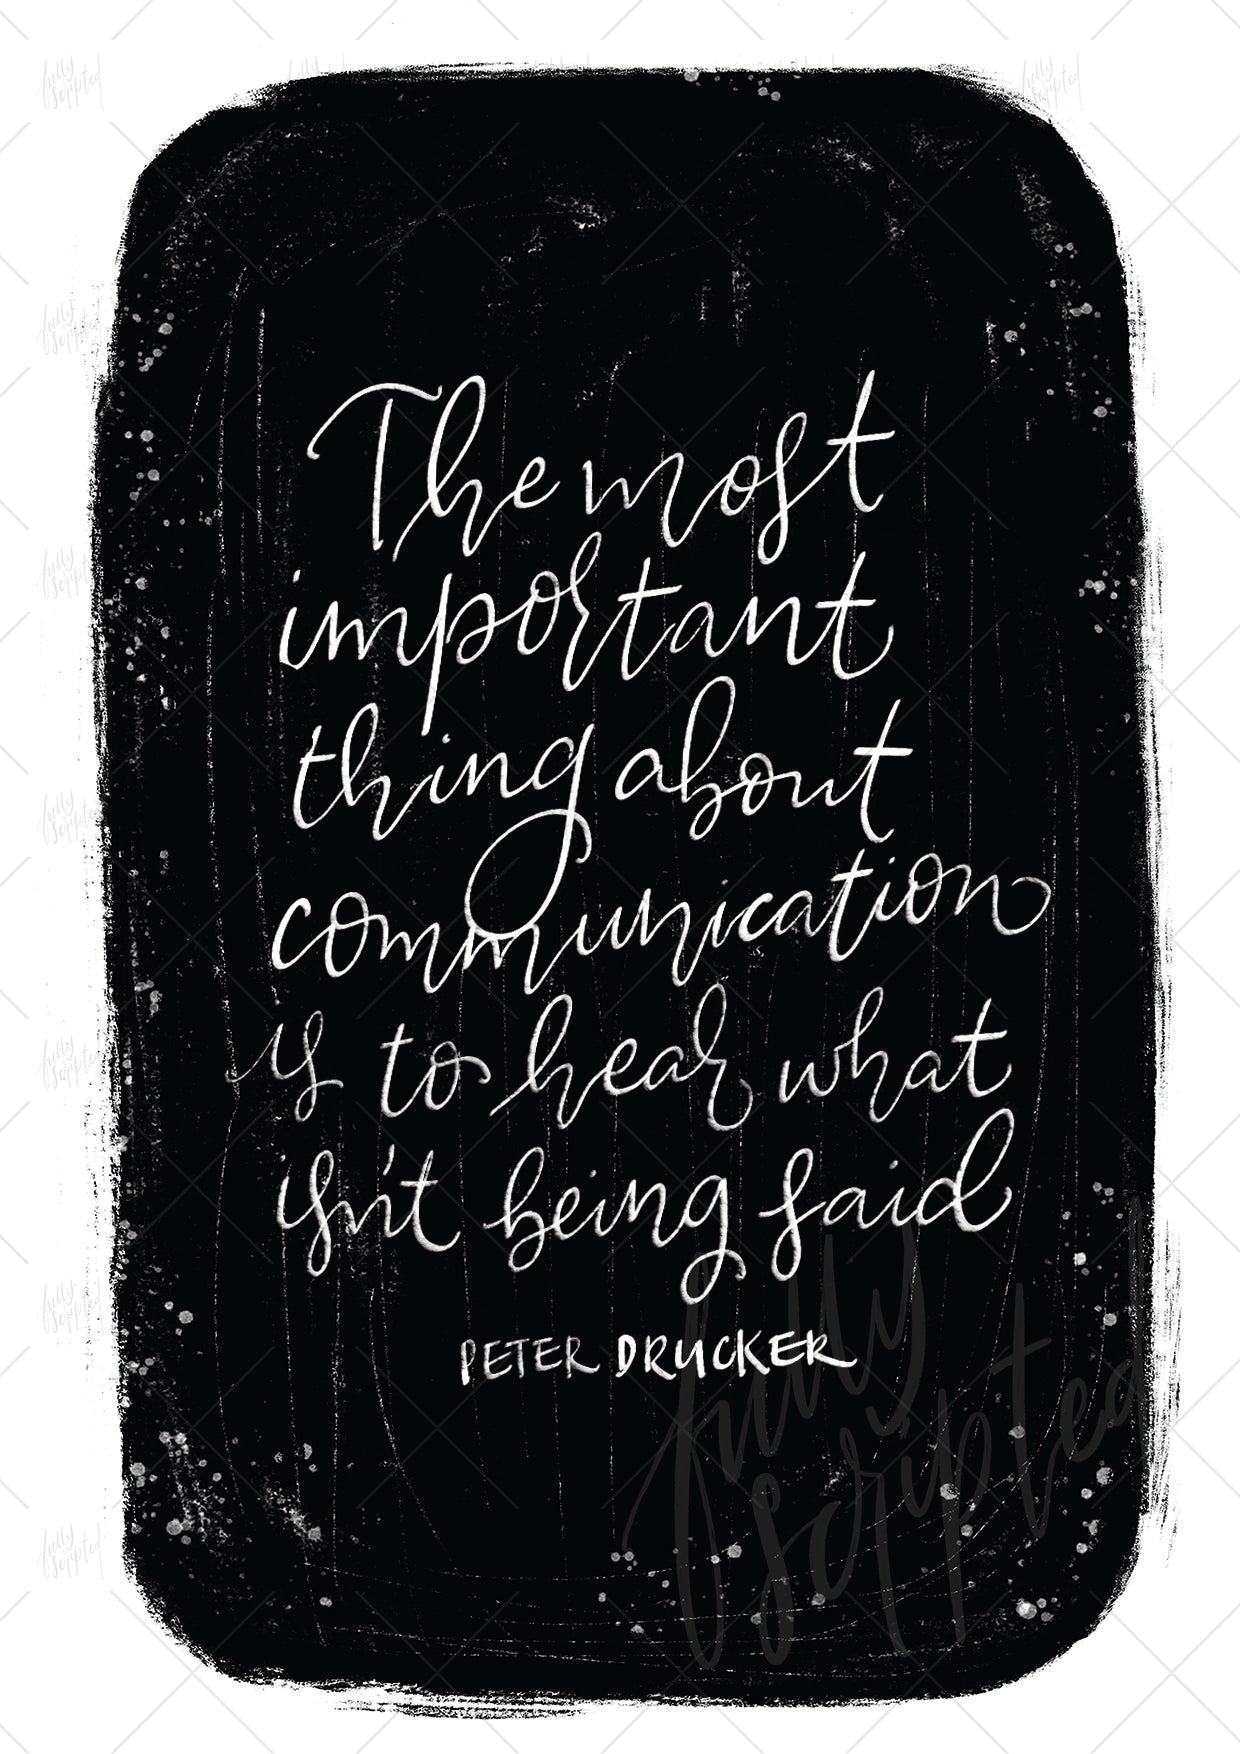 The most
important
thing about
communication
is to hear what
isn't being said
PETER DRUCKER
fully
scripted